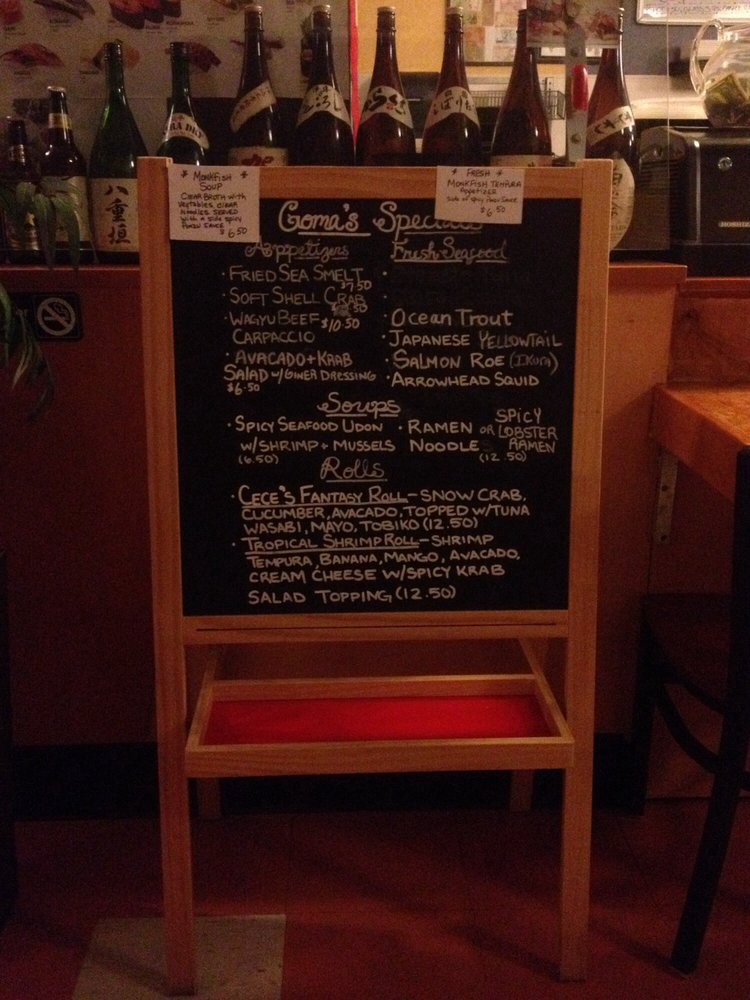 八重垣
* MONKFISH *
SOUP
CLEAR BROTH WITH
VEGTABLES, CLEAR
NOODLES SERVED
WITH A SIDE SPICY
PONZU SAUCE
$6.50
* FRESH *
MONKFISH TEMPURA
APPETIZER
SIDE OF SPICY PONZU SAUCE
$6.50
Goma's Specials
Appetizers
· FRIED SEA SMELT
$7.50
· SOFT SHELL CRAB
· WAGYU BEEF $10.50
CARPACCIO
· AVACADO + KRAB
SALAD W/GINER DRESSING
$6.50
Fresh Seafood
· OCEAN TROUT
· JAPANESE YELLOWTAIL
· SALMON ROE (IKURA)
· ARROWHEAD SQUID
Soups
· SPICY SEAFOOD UDON
W/SHRIMP + MUSSELS
(16.50)
· RAMEN OR SPICY
NOODLES LOBSTER
RAMEN
(12.50)
Rolls
· CECE'S FANTASY ROLL - SNOW CRAB,
CUCUMBER, AVACADO, TOPPED W/TUNA
WASABI, MAYO, TOBIKO (12.50)
· TROPICAL SHRIMP ROLL - SHRIMP
TEMPURA, BANANA, MANGO, AVACADO,
CREAM CHEESE W/SPICY KRAB
SALAD TOPPING (12.50)